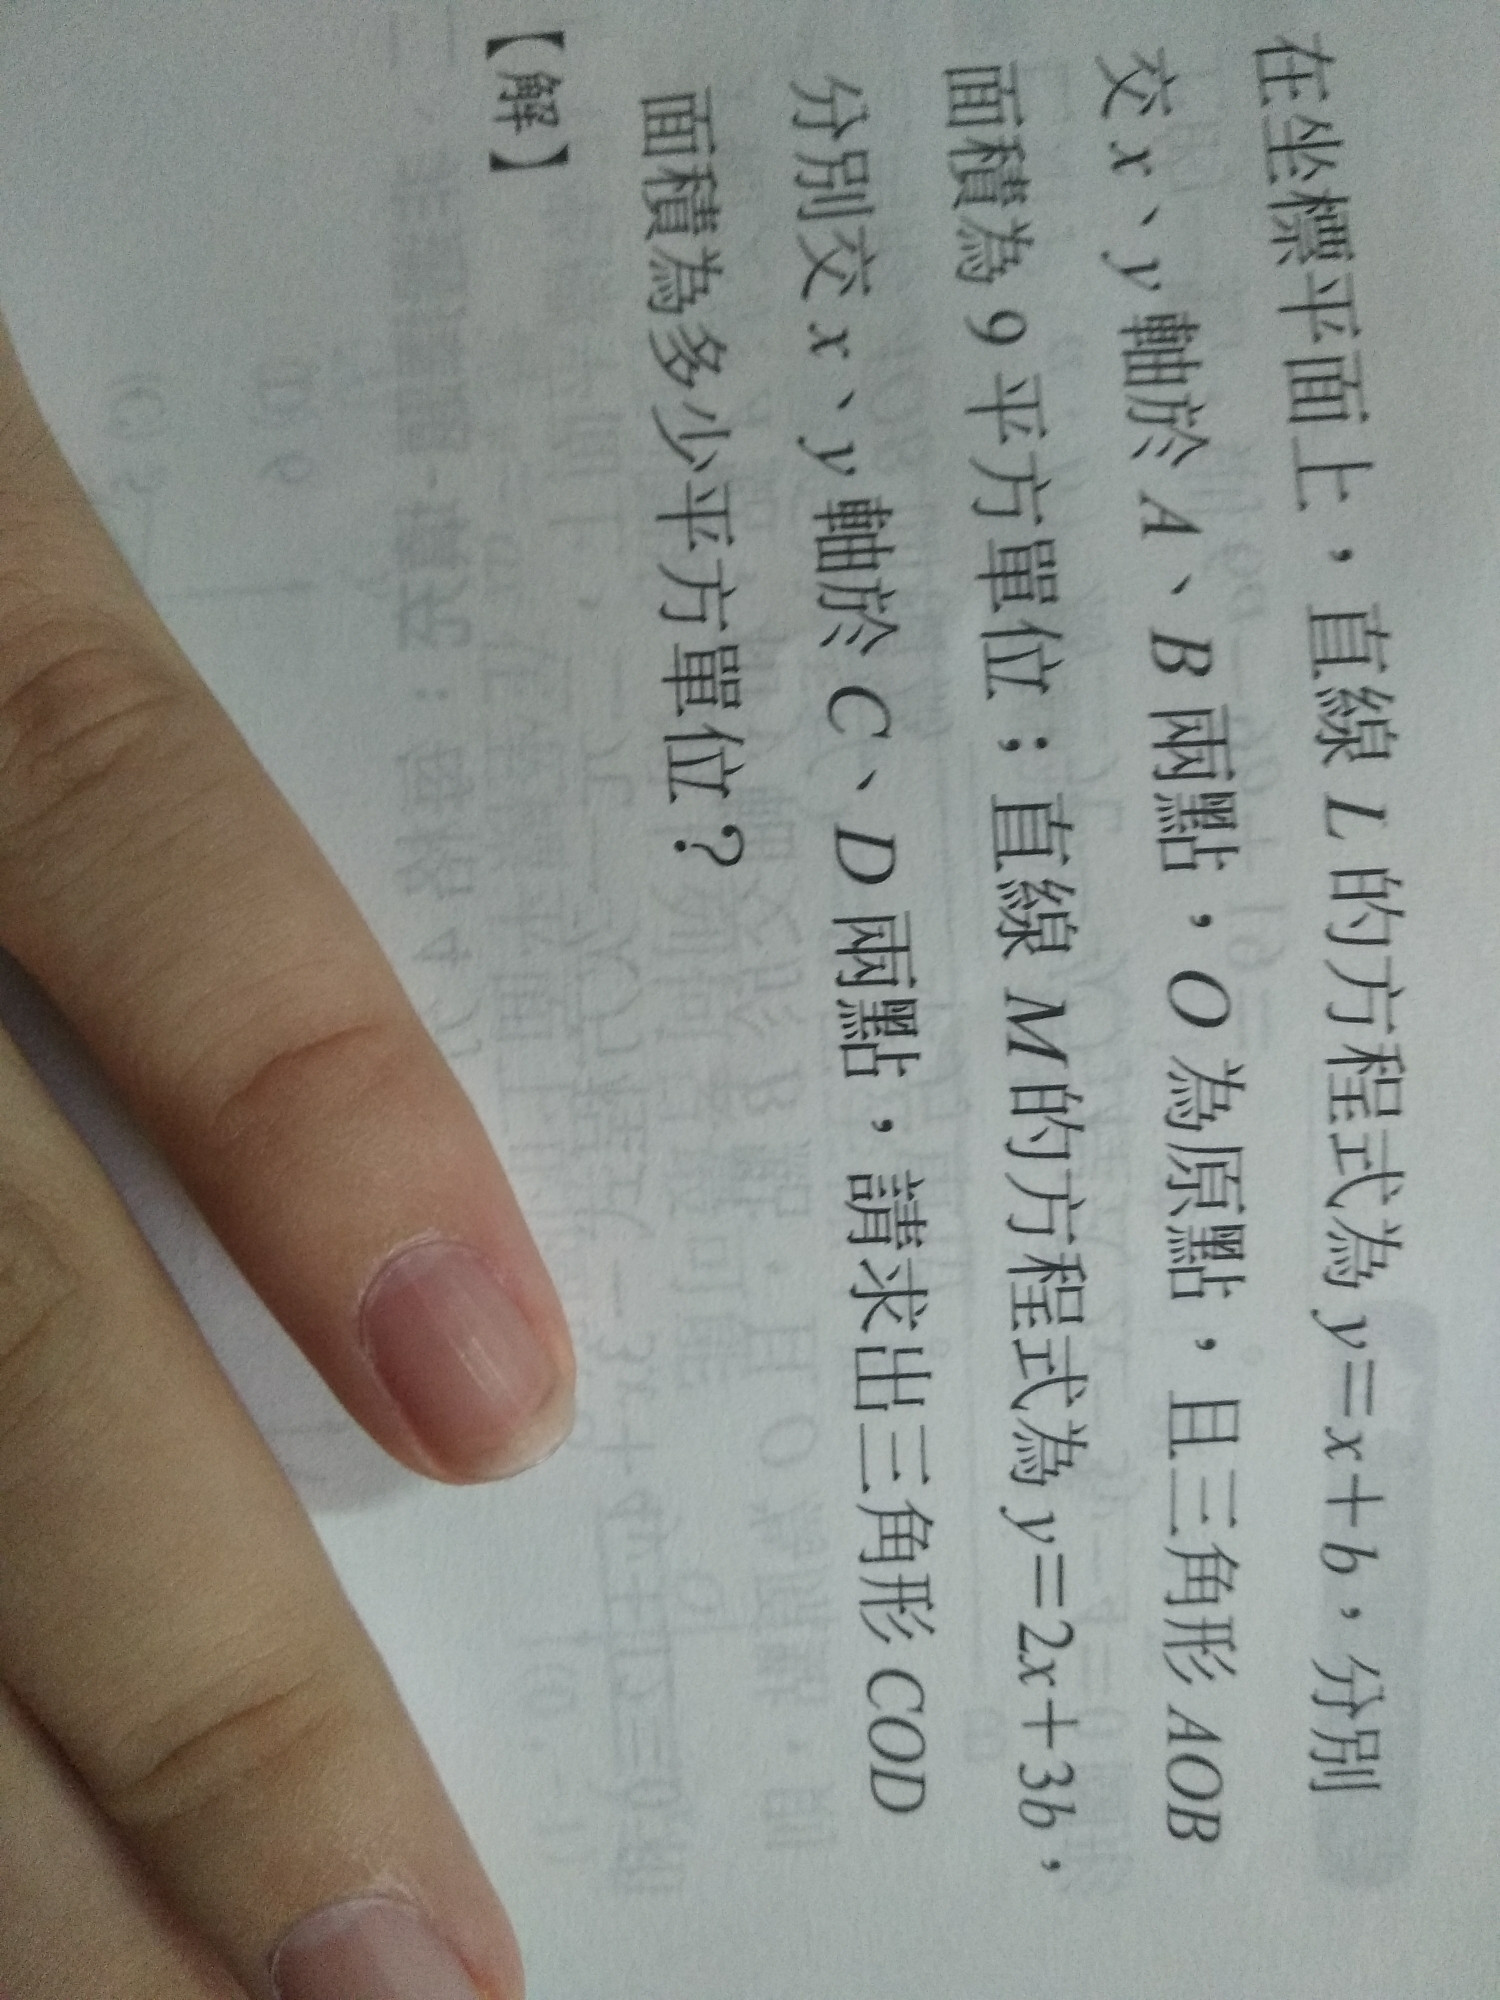 在坐標平面上，直線 L 的方程式為 y=x+b，分別
交 x、y 軸於 A、B 兩點，O 為原點，且三角形 AOB
面積為 9 平方單位；直線 M 的方程式為 y=2x+3b，
分別交 x、y 軸於 C、D 兩點，請求出三角形 COD
面積為多少平方單位？
【解】